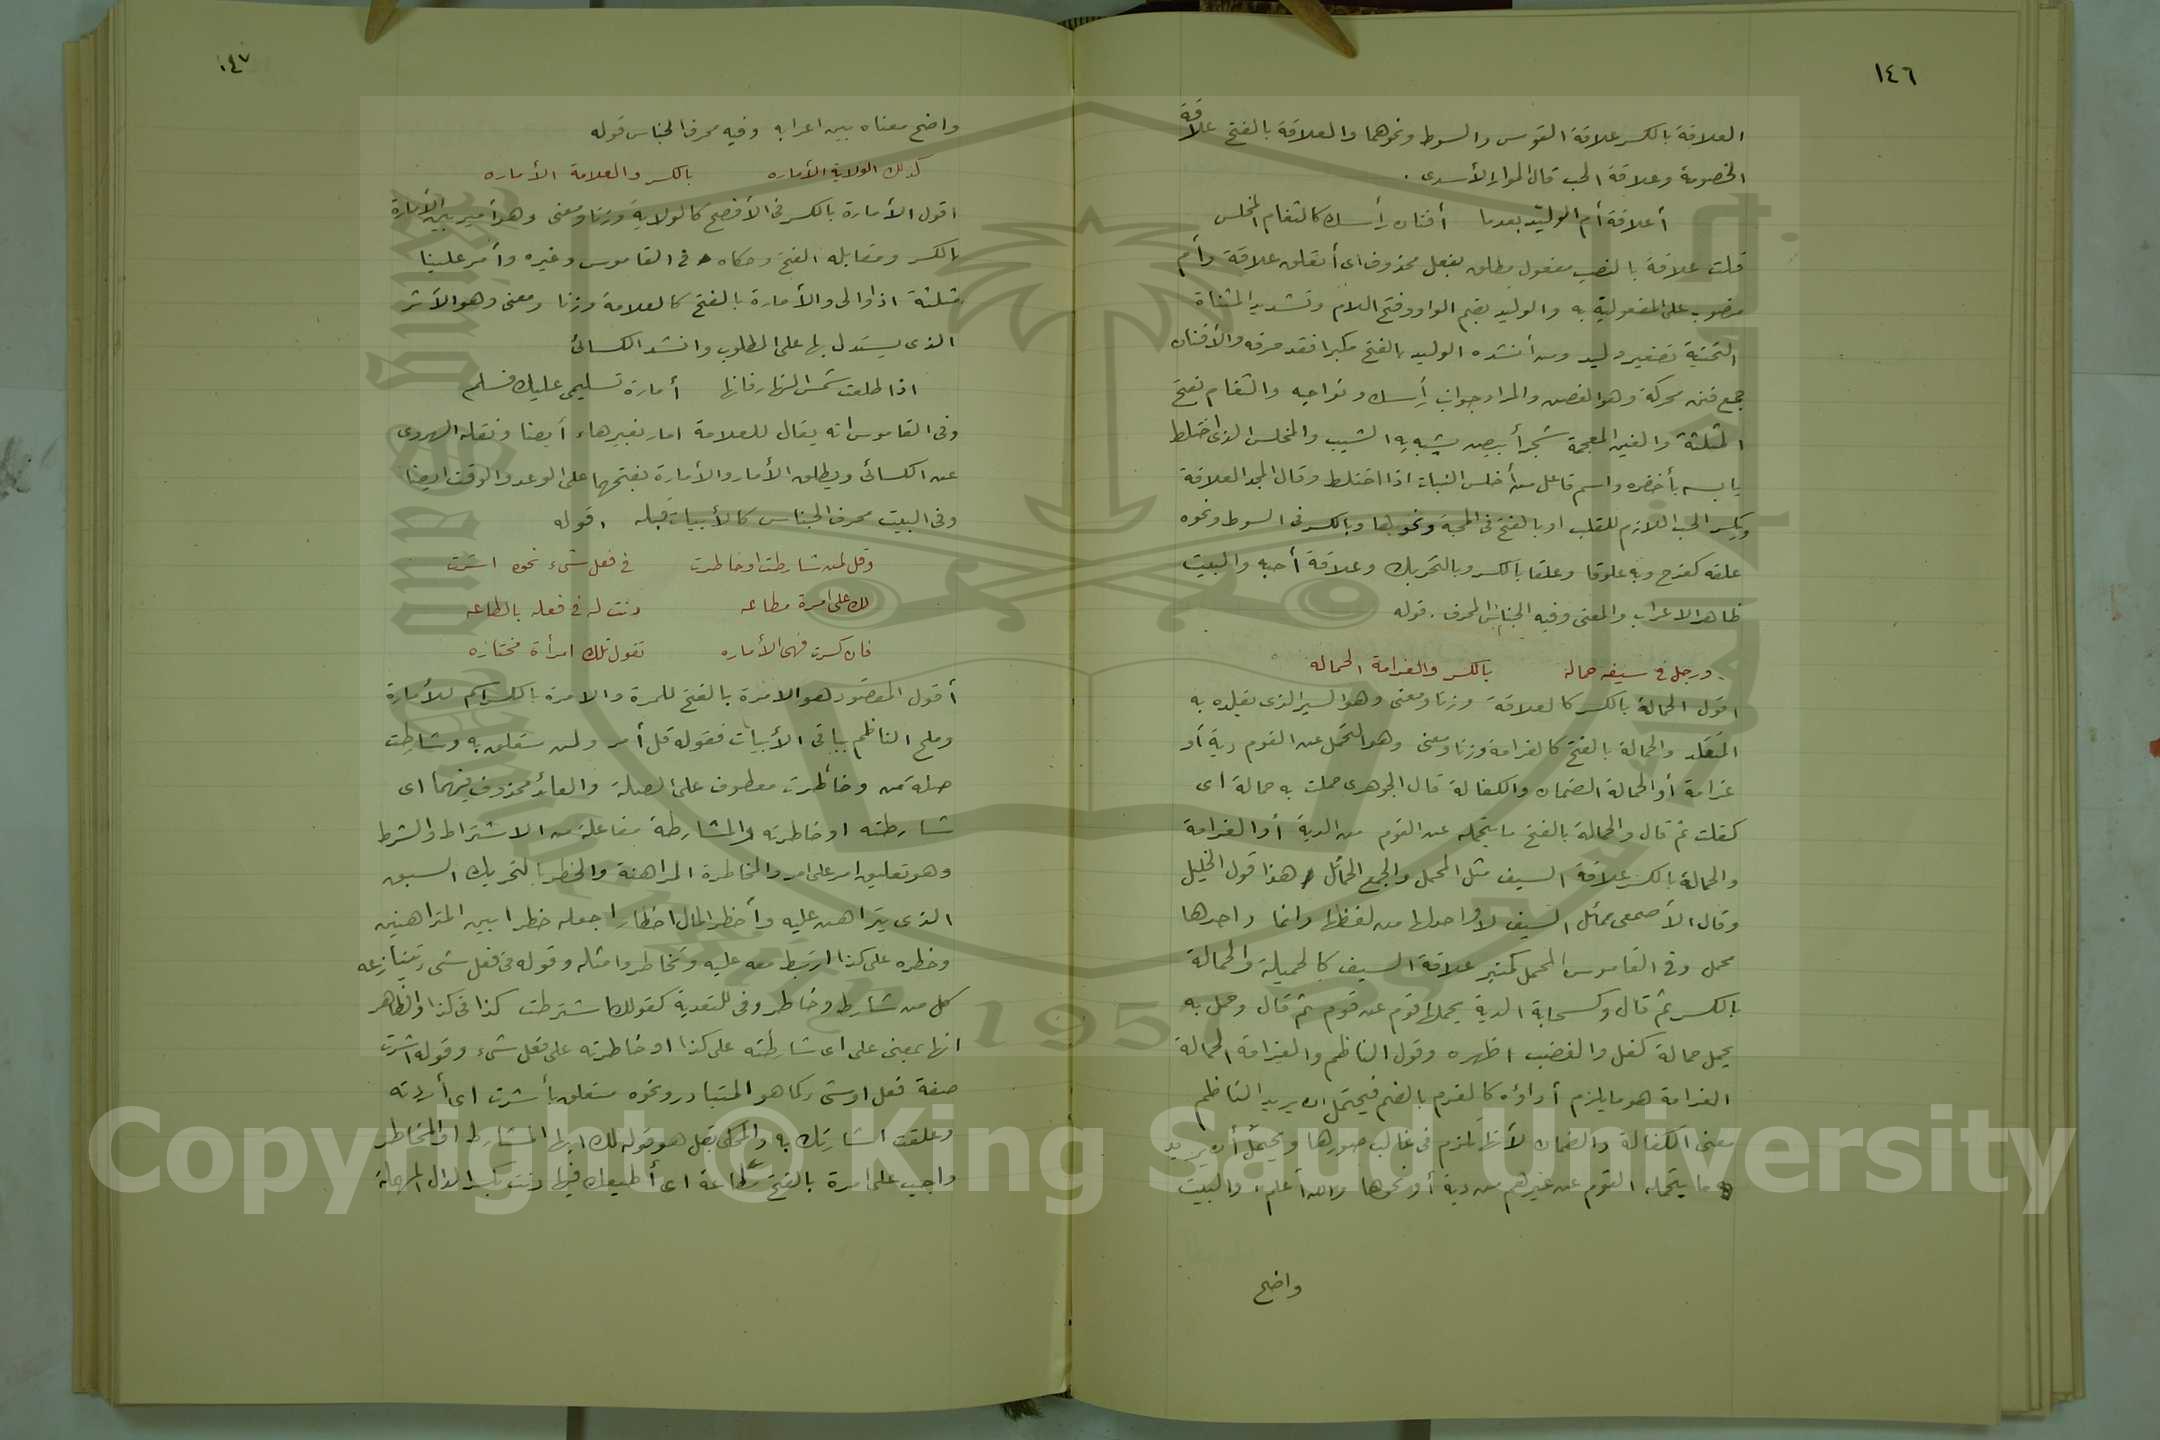 ١٤٦
العلاقة بالكسر علاقة القوس والسوط ونحوهما والعلاقة بالفتح علاقة
الخصومة وعلاقة الحب قال المرار الأسدى .
أعلاقة أم الوليّد بعدما أفنان رأسك كالثغام المخلس
قلت علاقة بالنصب مفعول مطلق بفعل محذوف اى أتعلق علاقة وأم
منصوب على المفعولية به والوليد بضم الواو وفتح اللام وتشديد المثناة
التحتية تصغير وليد ومن أنشده الوليد بالفتح مكبرا فقد حرفه والأفنان
جمع فنن محركة وهو الغصن والمراد جوانب رأسك ونواحيه والثغام بفتح
المثلثة والغين المعجمة شجر أبيض يشبه به الشيب والمخلس الذى اختلط
يابسه بأخضره واسم فاعل من أخلس النبات اذا اختلط وقال المجد العلاقة
ويكسر الحب اللازم للقلب او بالفتح فى المحبة ونحوها وبالكسر فى السوط ونحوه
علقه كفرح وبه علوقا وعلقا بالكسر وبالتحريك وعلاقة أحبه والبيت
ظاهر الاعراب والمعنى وفيه الجناس المحرف . قوله
ورجل فى سيفه حماله بالكسر والغرامة الحماله
اقول الحمالة بالكسر كالعلاقة وزنا ومعنى وهو السير الذى يقلده به
المتقلد والحمالة بالفتح كالغرامة وزنا ومعنى وهو التحمل عن القوم دية أو
غرامة أو الحمالة الضمان والكفالة قال الجوهرى حملت به حمالة اى
كفلت ثم قال والحمالة بالفتح ما يتحمله عن القوم من الدية أو الغرامة
والحمالة بالكسر علاقة السيف مثل المحمل والجمع الحمائل هذا قول الخليل
وقال الأصمعى حمائل السيف لا واحد لها من لفظها وانما واحدها
محمل وفى القاموس المحمل كمنبر علاقة السيف كالحميلة والحمالة
بالكسر ثم قال وكسحابة الدية يحملها قوم عن قوم ثم قال وحمل به
يحمل حمالة كفل والغضب اظهره وقول الناظم والغرامة الحمالة
الغرامة هو ما يلزم أداؤه كالغرم بالضم فيحتمل ان يريد الناظم
معنى الكفالة والضمان لأنها تلزم فى غالب صورها ويحتمل أن يريد
ما يتحمله القوم عن غيرهم من دية أو نحوها والله أعلم . والبيت
واضح
١٤٧
واضح معناه بين اعرابه وفيه محرف الجناس قوله
كذلك الولاية الأماره بالكسر والعلامة الأماره
اقول الأمارة بالكسر فى الأفصح كالولاية وزنا ومعنى وهو أمير بين الأمارة
بالكسر ومقابله الفتح وحكاه فى القاموس وغيره وأمر علينا
مثلثة اذا والى والأمارة بالفتح كالعلامة وزنا ومعنى وهو الأثر
الذى يستدل بها على المطلوب وانشد الكسائى
اذا طلعت شمس النهار فانها أمارة تسليمى عليك فسلم
وفى القاموس انه يقال للعلامة امار بغير هاء أيضا ونقله الهروى
عن الكسائى ويطلق الأمار والأمارة بفتحهما على الوعد والوقت ايضا
وفى البيت محرف الجناس كالأبيات قبله . قوله
وقل لمن شارطت او خاطرت فى فعل شىء نحوه اشرت
لك على امرة مطاعه دنت له فى فعله بالطاعه
فان كسرت فهى الأماره تقول تلك امرأة مختاره
أقول المقصود هو الامرة بالفتح للمرة والامرة بالكسر اسم للأمارة
وملح الناظم بباقى الأبيات فقوله قل أمر ولمن متعلق به وشارطت
صلة من وخاطرت معطوف على الصلة والعائد محذوف فيهما اى
شارطته او خاطرته والمشارطة مفاعلة من الاشتراط والشرط
وهو تعليق امر على امر والمخاطرة المراهنة والخطر بالتحريك السبق
الذى يتراهن عليه وأخطر المال اخطارا جعله خطرا بين المتراهنين
وخطره على كذا ارتبط معه عليه وتخاطروا مثله وقوله فى فعل شىء يتنازعه
كل من شارط وخاطر وفى للتعدية كقولك اشترطت كذا فى كذا والظاهر
انها بمعنى على اى شارطته على كذا او خاطرته على فعل شىء وقوله اشرت
صفة فعل او شىء كما هو المتبادر ونحوه متعلق بأشرت اى أردته
وعلقت اشارتك به والمحكى بقل هو قوله لك ايها المشارط او المخاطر
واجب على امرة بالفتح مطاعة اى أطيعك فيها دنت بكسر الدال المهملة
Copyright © King Saud University
1957